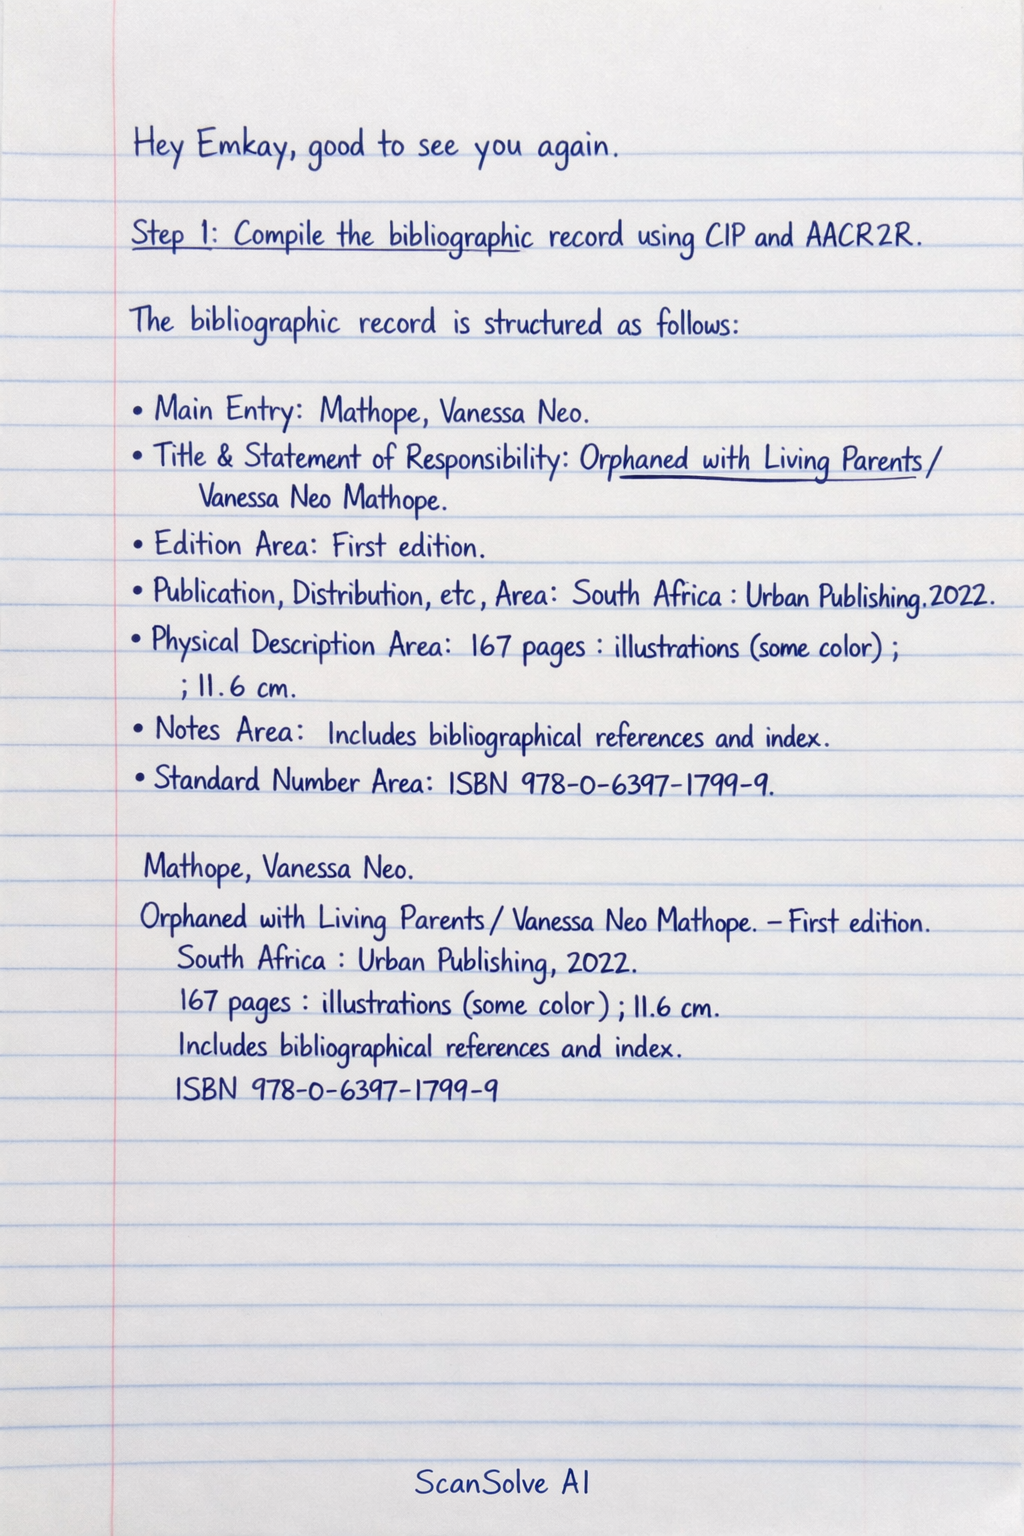 Hey Emkay, good to see you again.
Step 1: Compile the bibliographic record using CIP and AACR2R.
The bibliographic record is structured as follows:
• Main Entry: Mathope, Vanessa Neo.
• Title & Statement of Responsibility: Orphaned with Living Parents/
Vanessa Neo Mathope.
• Edition Area: First edition.
• Publication, Distribution, etc, Area: South Africa : Urban Publishing.2022.
• Physical Description Area: 167 pages : illustrations (some color) ;
; 11.6 cm.
• Notes Area: Includes bibliographical references and index.
• Standard Number Area: ISBN 978-0-6397-1799-9.
Mathope, Vanessa Neo.
Orphaned with Living Parents/ Vanessa Neo Mathope. – First edition.
South Africa : Urban Publishing, 2022.
167 pages : illustrations (some color) ; 11.6 cm.
Includes bibliographical references and index.
ISBN 978-0-6397-1799-9
ScanSolve AI